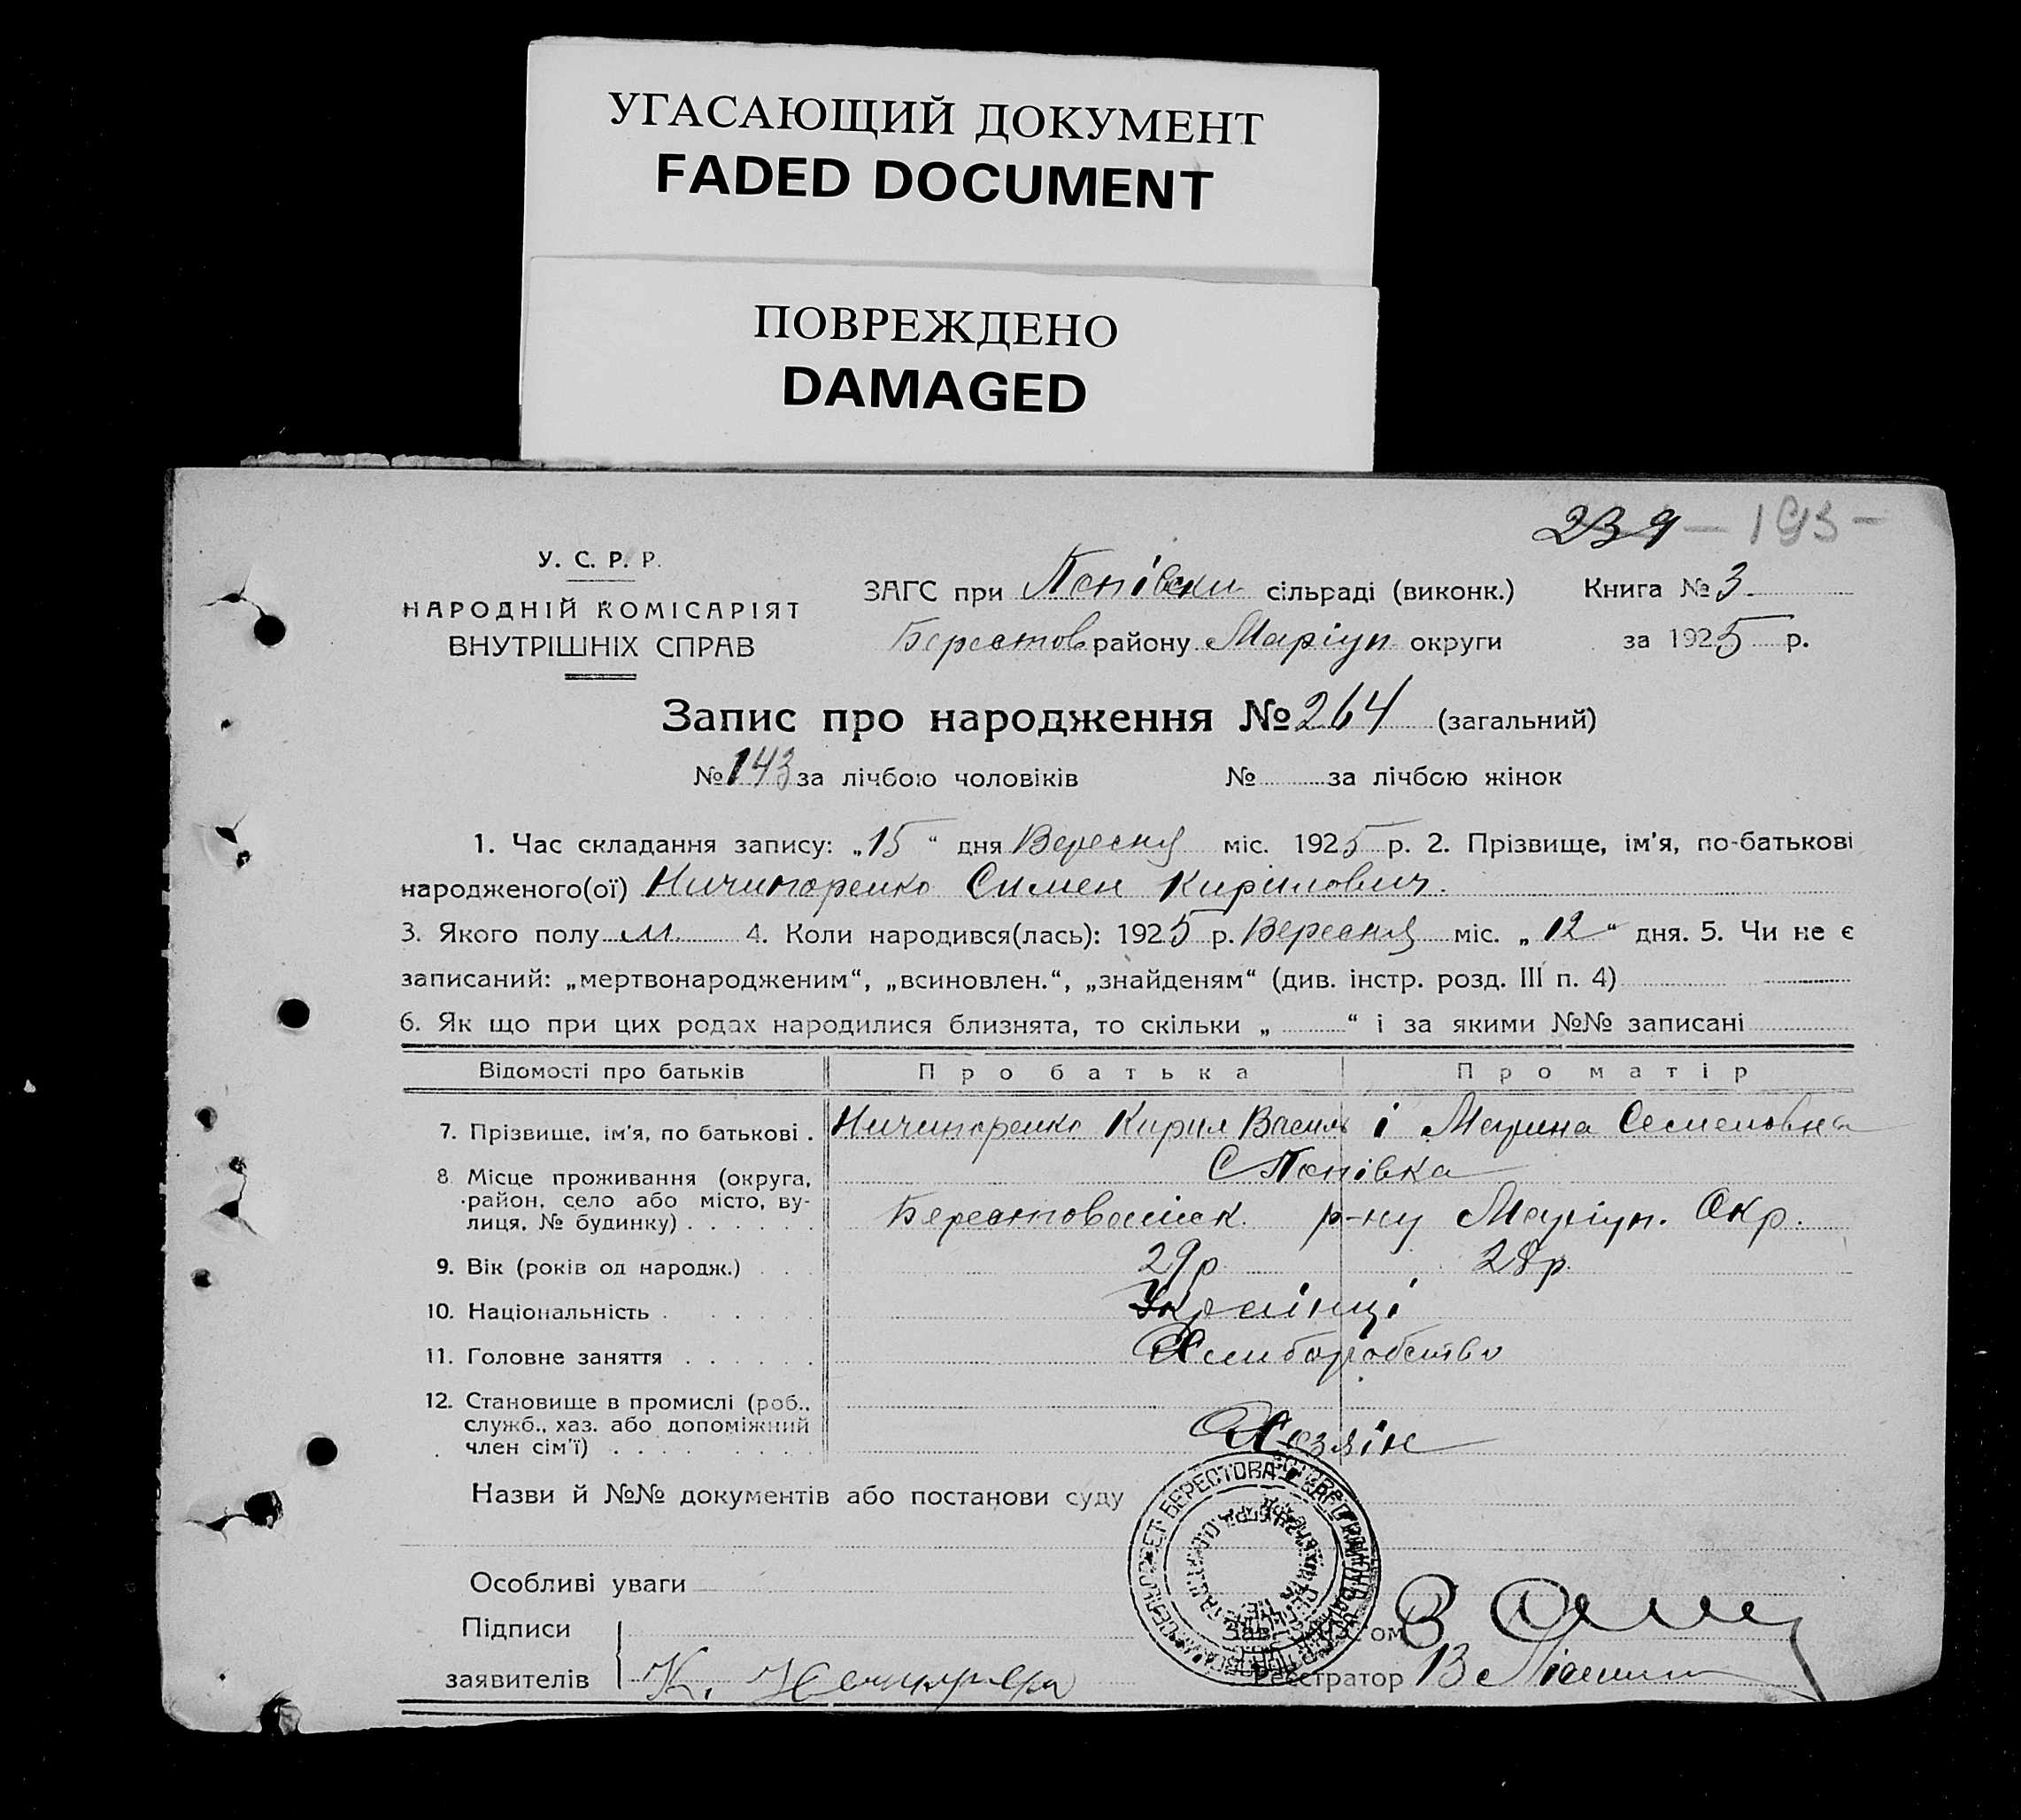 УГАСАЮЩИЙ ДОКУМЕНТ
FADED DOCUMENT
ПОВРЕЖДЕНО
DAMAGED
239 - 193 -
У. С. Р. Р.
НАРОДНІЙ КОМІСАРІЯТ
ВНУТРІШНІХ СПРАВ
ЗАГС при Попівски сільраді (виконк.) Книга № 3
Берестов району Маріуп округи за 1925 р.
Запис про народження № 264 (загальний)
№ 143 за лічбою чоловіків № за лічбою жінок
1. Час складання запису: „15“ дня Вересня міс. 1925 р. 2. Прізвище, ім'я, по-батькові
народженого(ої) Ничипоренко Симен Кирилович.
3. Якого полу м. 4. Коли народився(лась): 1925 р. Вересня міс. „12“ дня. 5. Чи не є
записаний: „мертвонародженим“, „всиновлен.“, „знайденям“ (див. інстр. розд. III п. 4)
6. Як що при цих родах народилися близнята, то скільки „ “ і за якими №№ записані
Відомості про батьків Про батька Про матір
7. Прізвище, ім'я, по батькові . Ничипоренко Кирил Василь і Марина Семеновна
8. Місце проживання (округа, С Попівка
район, село або місто, ву-
лиця, № будинку) . . . . . р-ну Маріуп. Окр.
9. Вік (років од народж.) . . 29 р 28 р.
10. Національність . . . . . Українці
11. Головне заняття . . . . . Хлиборобство
12. Становище в промислі (роб.,
служб., хаз. або допоміжний
член сім'ї) . . . . . . . Хозяін
Назви й №№ документів або постанови суду
Особливі уваги
Підписи
заявителів К. Реєстратор В